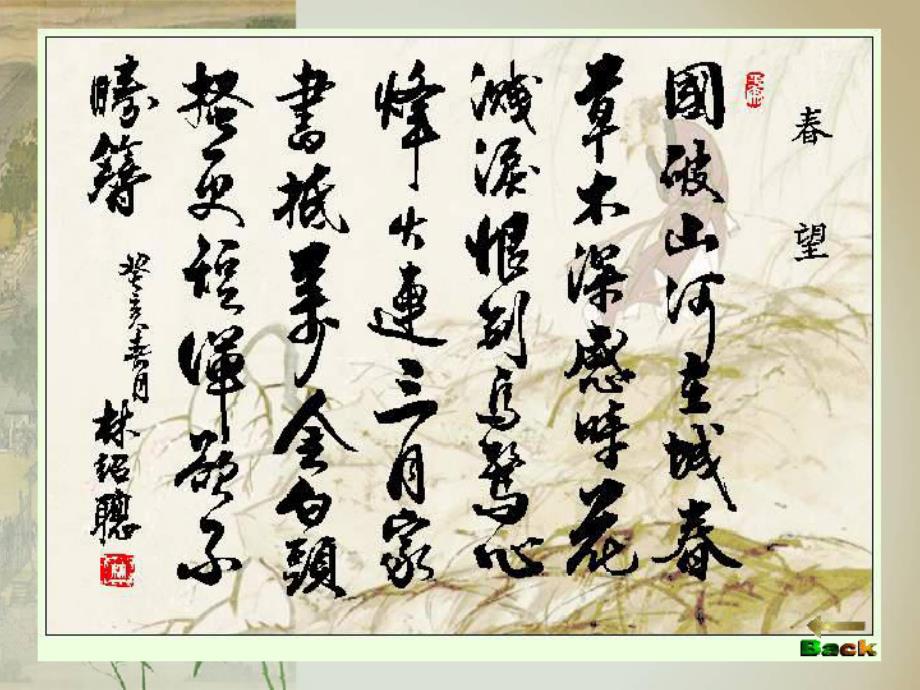 春望
國破山河在城春
草木深感時花
濺淚恨別鳥驚心
烽火連三月家
書抵萬金白頭
搔更短渾欲不
勝簪
癸亥春月
林紹聰
Back